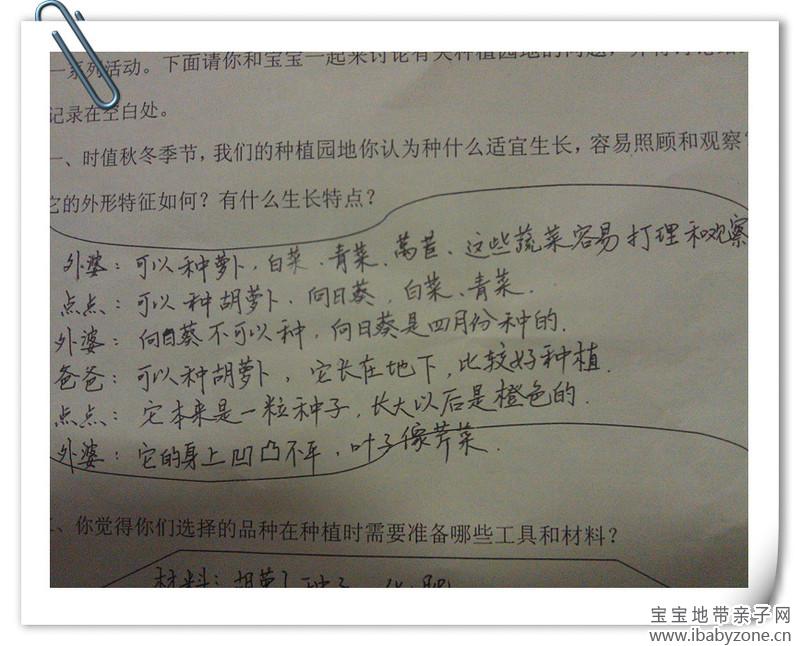 一系列活动。下面请你和宝宝一起来讨论有关种植园地的问题,并将讨论
记录在空白处。
一、时值秋冬季节,我们的种植园地你认为种什么适宜生长,容易照顾和观察?
它的外形特征如何?有什么生长特点?
外婆:可以种萝卜,白菜、青菜、莴苣、这些蔬菜容易打理和观察
点点:可以种胡萝卜、向日葵,白菜、青菜.
外婆:向日葵不可以种,向日葵是四月份种的.
爸爸:可以种胡萝卜,它长在地下,比较好种植.
点点:它本来是一粒种子,长大以后是橙色的.
外婆:它的身上凹凸不平,叶子像芹菜.
、你觉得你们选择的品种在种植时需要准备哪些工具和材料?
材料:胡萝卜种子、化肥
宝宝地带亲子网
www.ibabyzone.cn